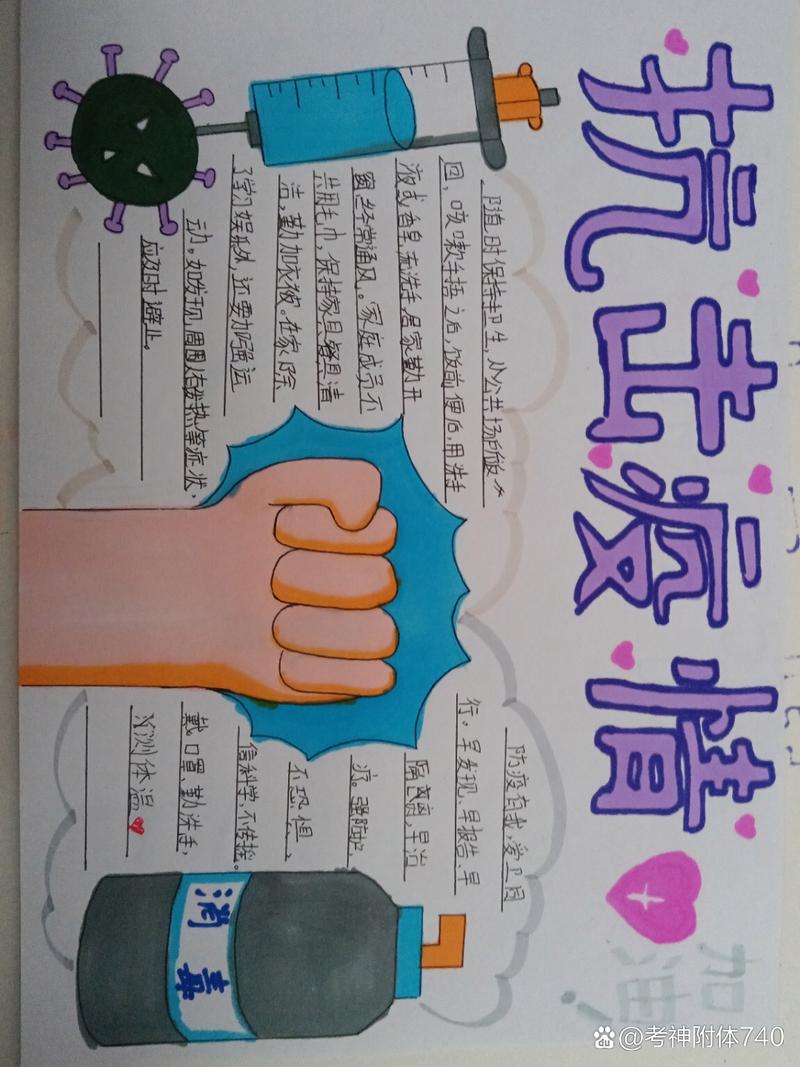 抗击疫情
加油!
随时保持卫生,从公共场所返
回,咳嗽手捂之后,饭前便后,用洗手
液或香皂,流洗手,居家勤开
窗,经常通风。家庭成员不
共用毛巾,保持家具餐具清
洁,勤加衣被。在家除
了学习娱乐外,还要加强运
动。如发现,周围人有发热等症状,
应及时避止。
防疫有我,爱卫同
行。早发现、早报告、早
隔离,早治
疗。强防护,
不恐惧、
信科学,不传谣。
戴口罩,勤洗手,
测体温
消毒
@考神附体740